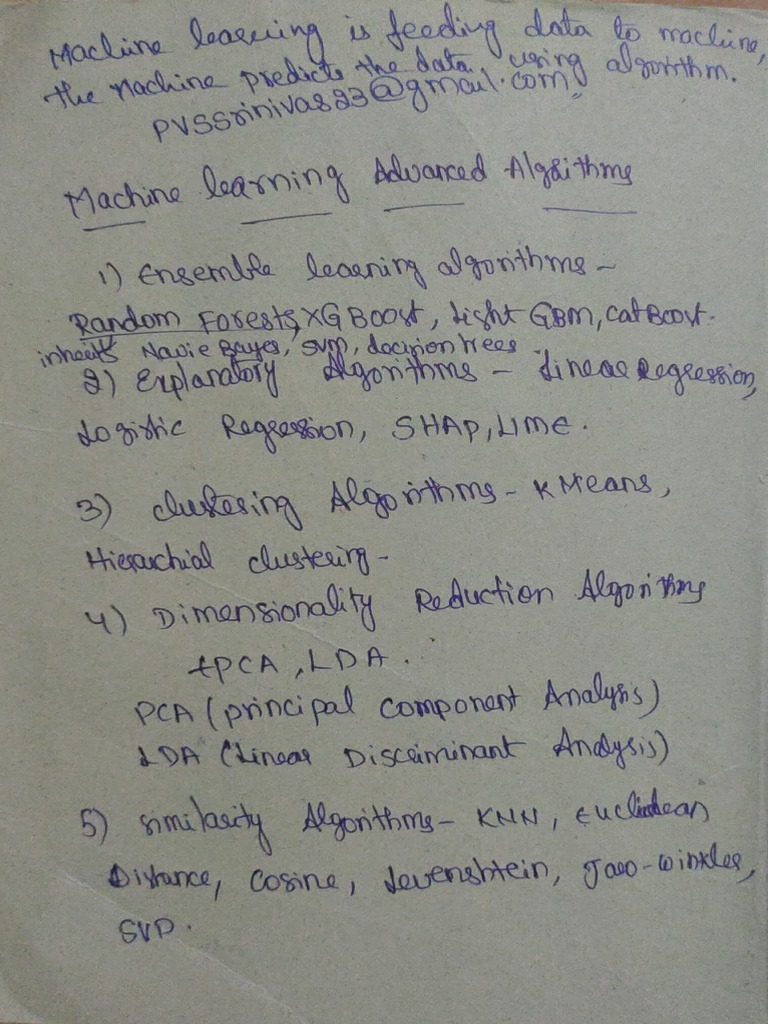 Machine learning is feeding data to machine,
the Machine predicts the data, using algorithm.
PVSSrinivas23@gmail.com
Machine learning Advanced Algorithms
1) Ensemble learning algorithms -
Random Forests, XG Boost, Light GBM, Cat Boost.
inherits Navie Bayes, SVM, decision trees
2) Explanatory Algorithms - Linear Regression,
Logistic Regression, SHAP, LIME.
3) clustering Algorithms - K Means,
Hierarchial clustering -
4) Dimensionality Reduction Algorithms
PCA, LDA.
PCA (principal component Analysis)
LDA (Linear Discriminant Analysis)
5) similarity Algorithms - KNN, Euclidean
Distance, Cosine, Levenshtein, Jaro-Winkler,
SVD.